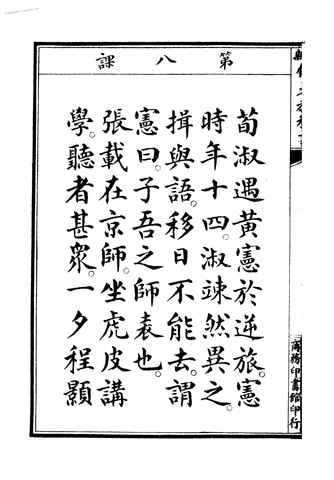 第八課
荀淑遇黃憲於逆旅。憲
時年十四。淑竦然異之。
揖與語。移日不能去。謂
憲曰。子吾之師表也。
張載在京師。坐虎皮講
學。聽者甚衆。一夕程顥
商務印書館印行